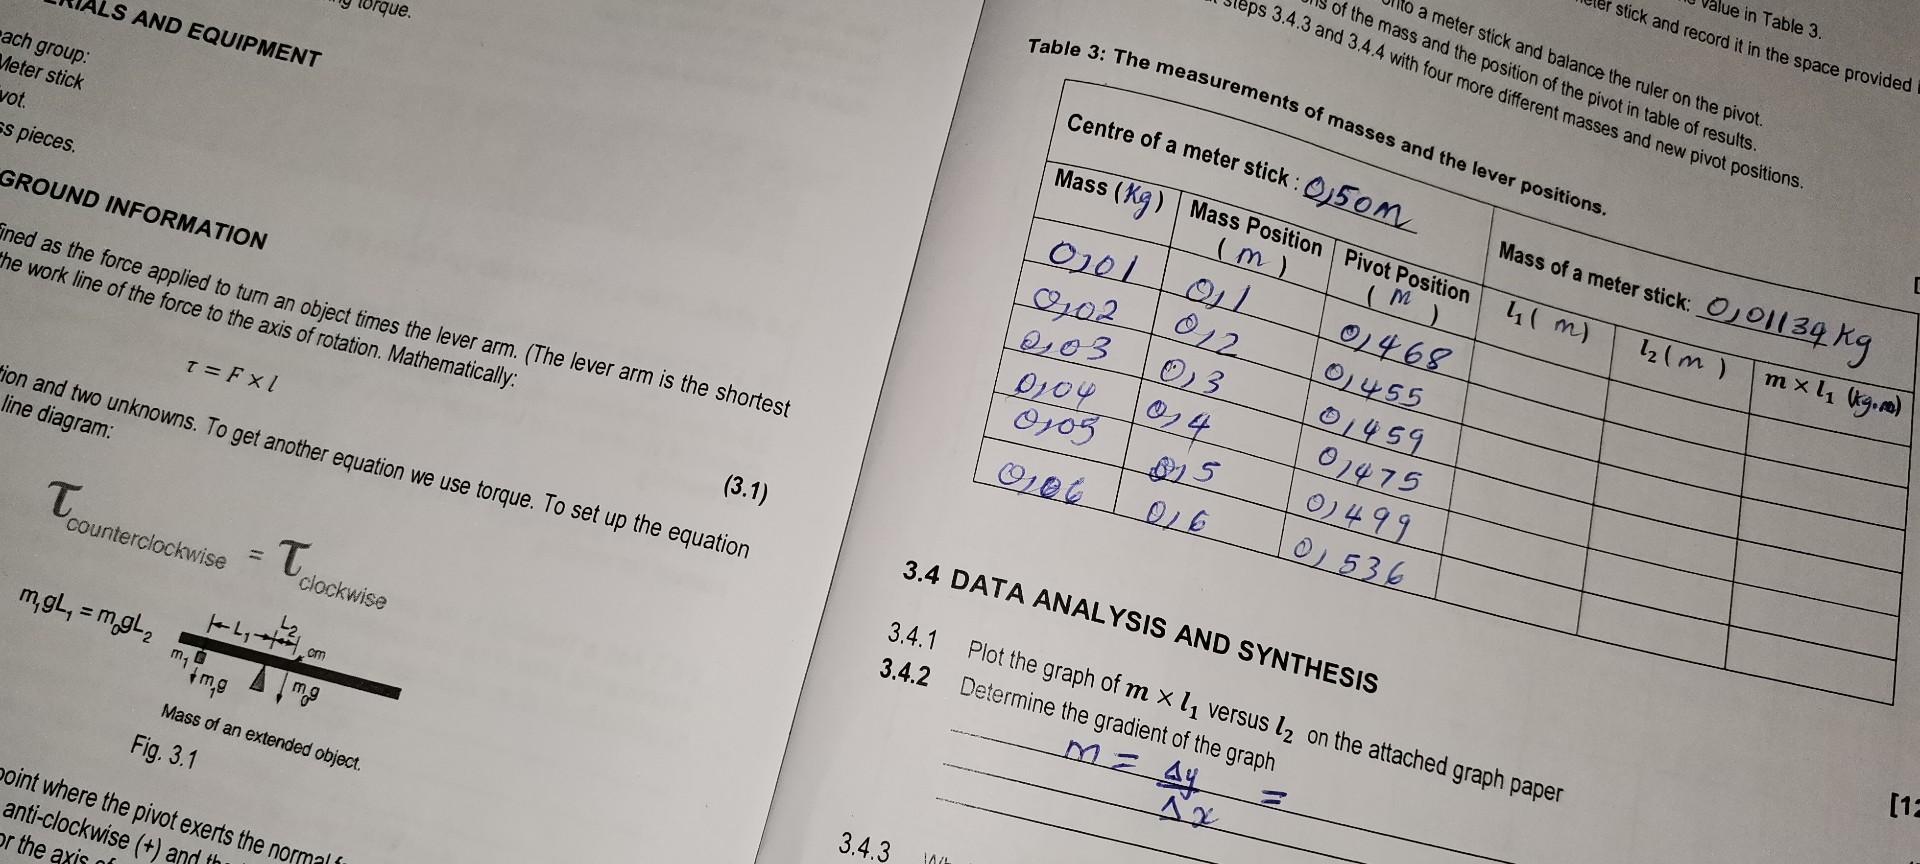 ng torque.
ERIALS AND EQUIPMENT
each group:
Meter stick
vot.
ss pieces.
GROUND INFORMATION
fined as the force applied to turn an object times the lever arm. (The lever arm is the shortest
the work line of the force to the axis of rotation. Mathematically:
τ = F × l
(3.1)
tion and two unknowns. To get another equation we use torque. To set up the equation
line diagram:
τcounterclockwise = τclockwise
m₁gL₁ = m₀gL₂
L₁ L₂
cm
m₁
m₁g
m₀g
Mass of an extended object.
Fig. 3.1
point where the pivot exerts the normal
anti-clockwise (+) and
or the axis
value in Table 3.
stick and record it in the space provided
onto a meter stick and balance the ruler on the pivot.
of the mass and the position of the pivot in table of results.
steps 3.4.3 and 3.4.4 with four more different masses and new pivot positions.
Table 3: The measurements of masses and the lever positions.
Centre of a meter stick : 0,50m
Mass of a meter stick: 0,01134 kg
Mass (kg) Mass Position (m) Pivot Position (m) l₁ (m) l₂ (m) m × l₁ (kg.m)
0,01 0,1 0,468
0,02 0,2 0,455
0,03 0,3 0,459
0,04 0,4 0,475
0,05 0,5 0,499
0,06 0,6 0,536
3.4 DATA ANALYSIS AND SYNTHESIS
3.4.1 Plot the graph of m × l₁ versus l₂ on the attached graph paper
3.4.2 Determine the gradient of the graph
m = Δy/Δx =
3.4.3